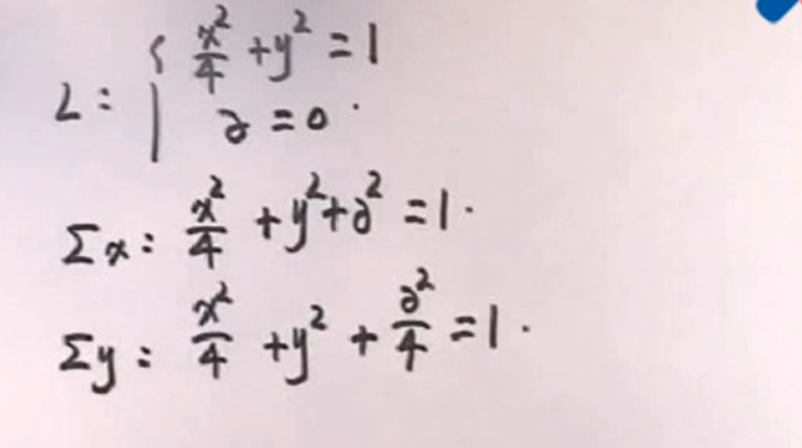 L: { x²/4 + y² = 1
z = 0.
Σx: x²/4 + y² + z² = 1.
Σy: x²/4 + y² + z²/4 = 1.